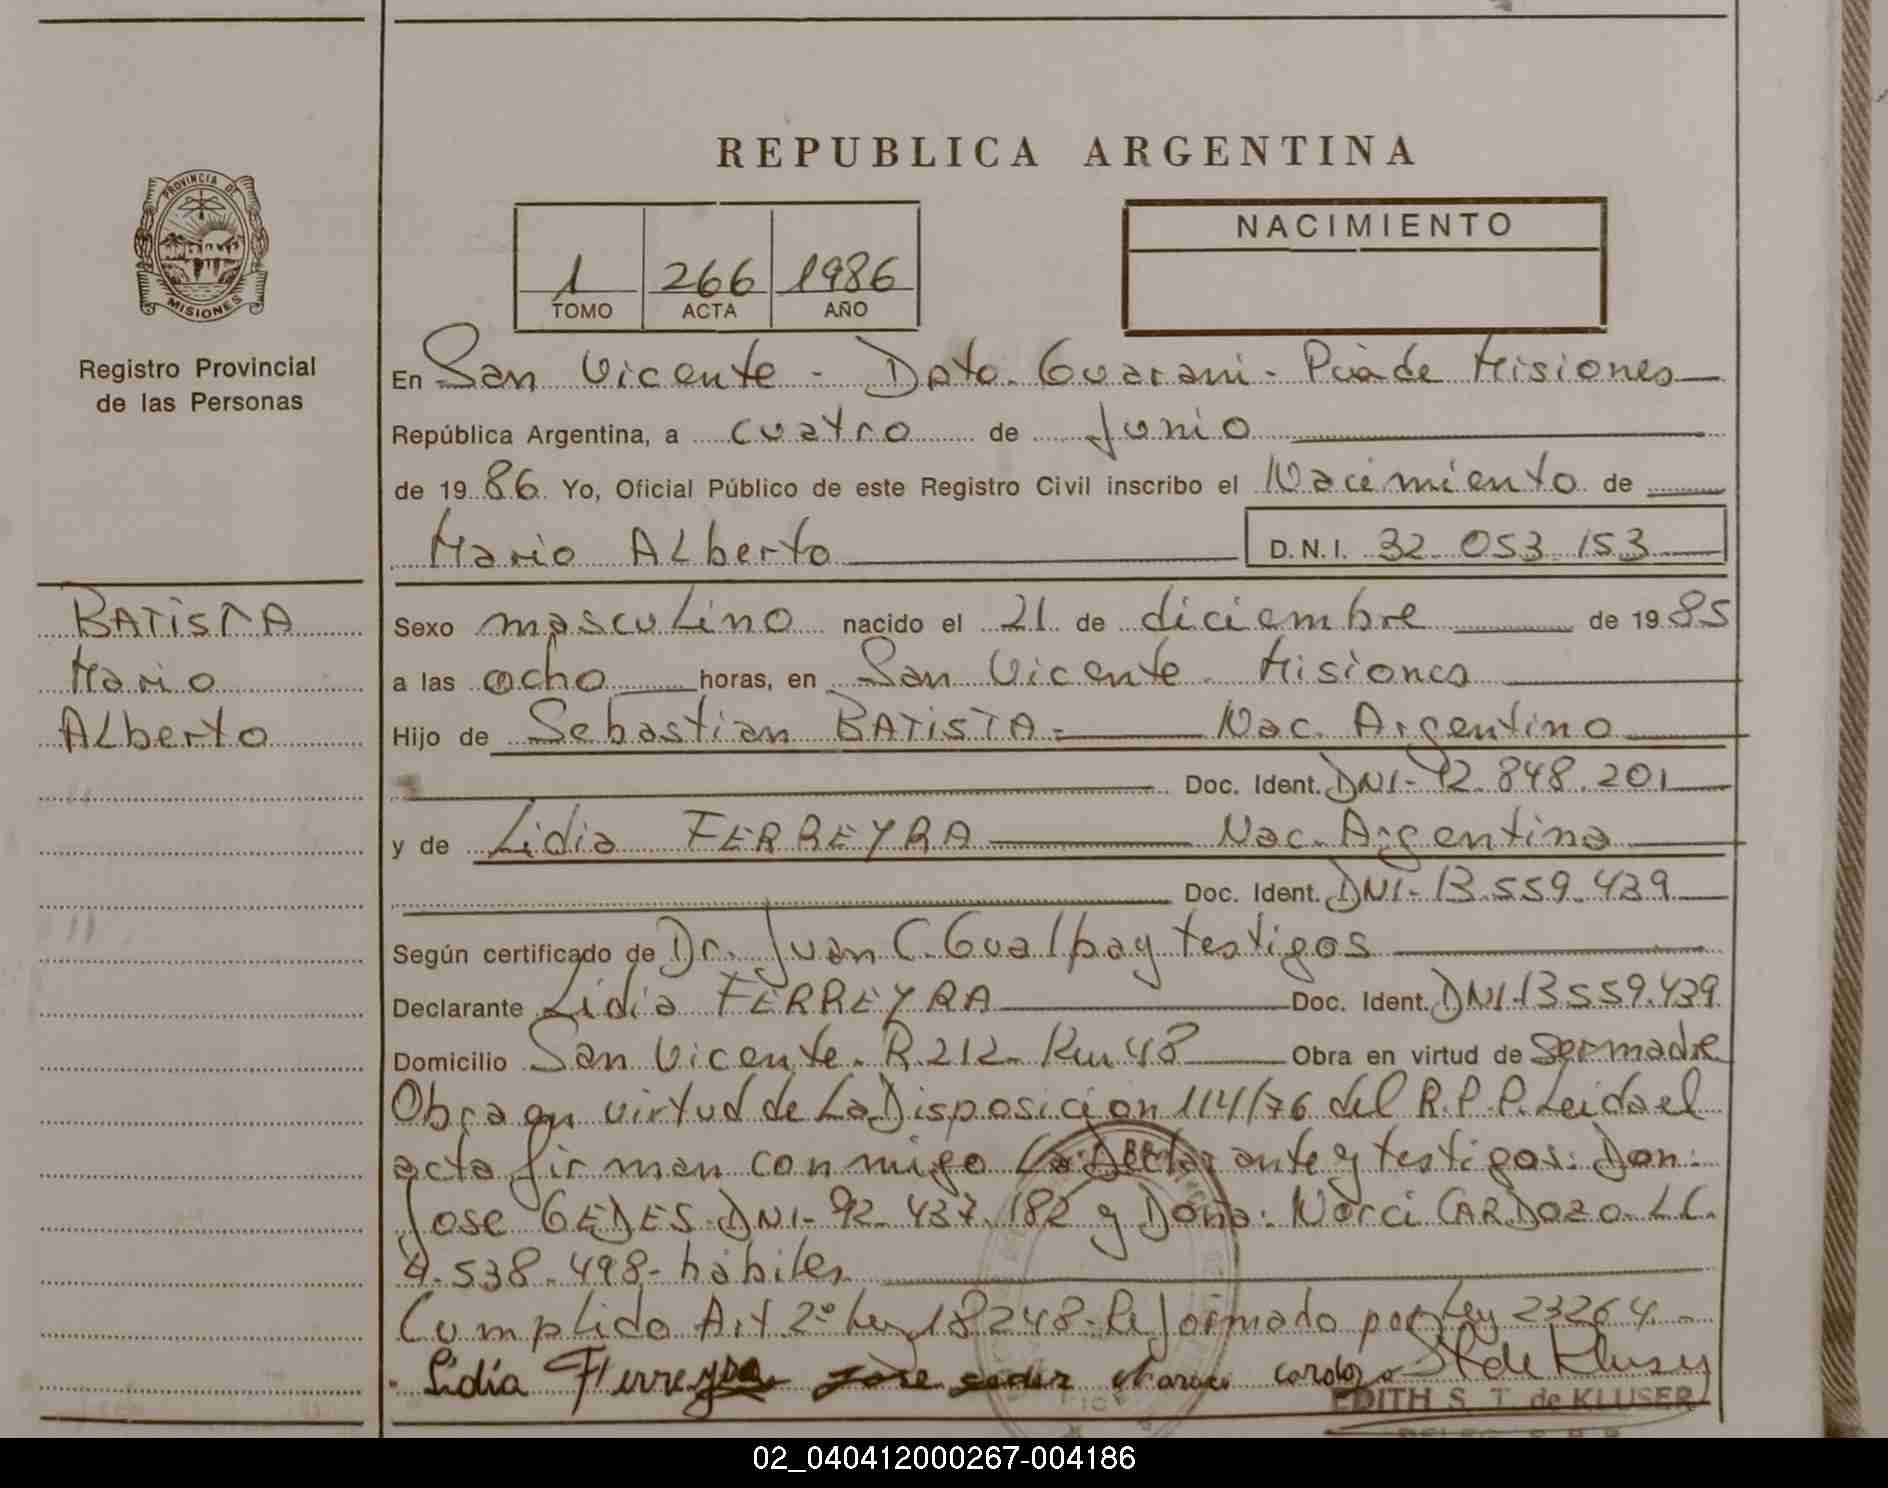 REPUBLICA ARGENTINA
PROVINCIA DE
MISIONES
Registro Provincial
de las Personas
1 266 1986
TOMO ACTA AÑO
NACIMIENTO
En San Vicente - Dpto. Guarani - Pcia de Misiones
República Argentina, a cuatro de Junio
de 1986 Yo, Oficial Público de este Registro Civil inscribo el Nacimiento de
Mario Alberto D.N.I. 32.053.153
BATISTA
Mario
Alberto
Sexo masculino nacido el 21 de diciembre de 1985
a las ocho horas, en San Vicente Misiones
Hijo de Sebastian BATISTA= Nac. Argentino
Doc. Ident. DNI- 92.848.201
y de Lidia FERREYRA Nac. Argentina
Doc. Ident. DNI- 13.559.439
Según certificado de Dr. Juan C. Gualpa y testigos
Declarante Lidia FERREYRA Doc. Ident. DNI-13.559.439
Domicilio San Vicente. R.212- Km 48 Obra en virtud de ser madre
Obra en virtud de La Disposición 114/76 del R.P.P. Leida el
acta firman conmigo La Declarante y testigos: Don:
Jose GEDES-DNI- 92.437.182 y Doña: Norci CARDOZO-L.C.
4.538.498- hábiles
Cumplido Art 2º Ley 18248-Reformado por Ley 23264.-
Lidia Ferreyra Jose cardozo St de Kluser
EDITH S. T. de KLUSER
02_040412000267-004186